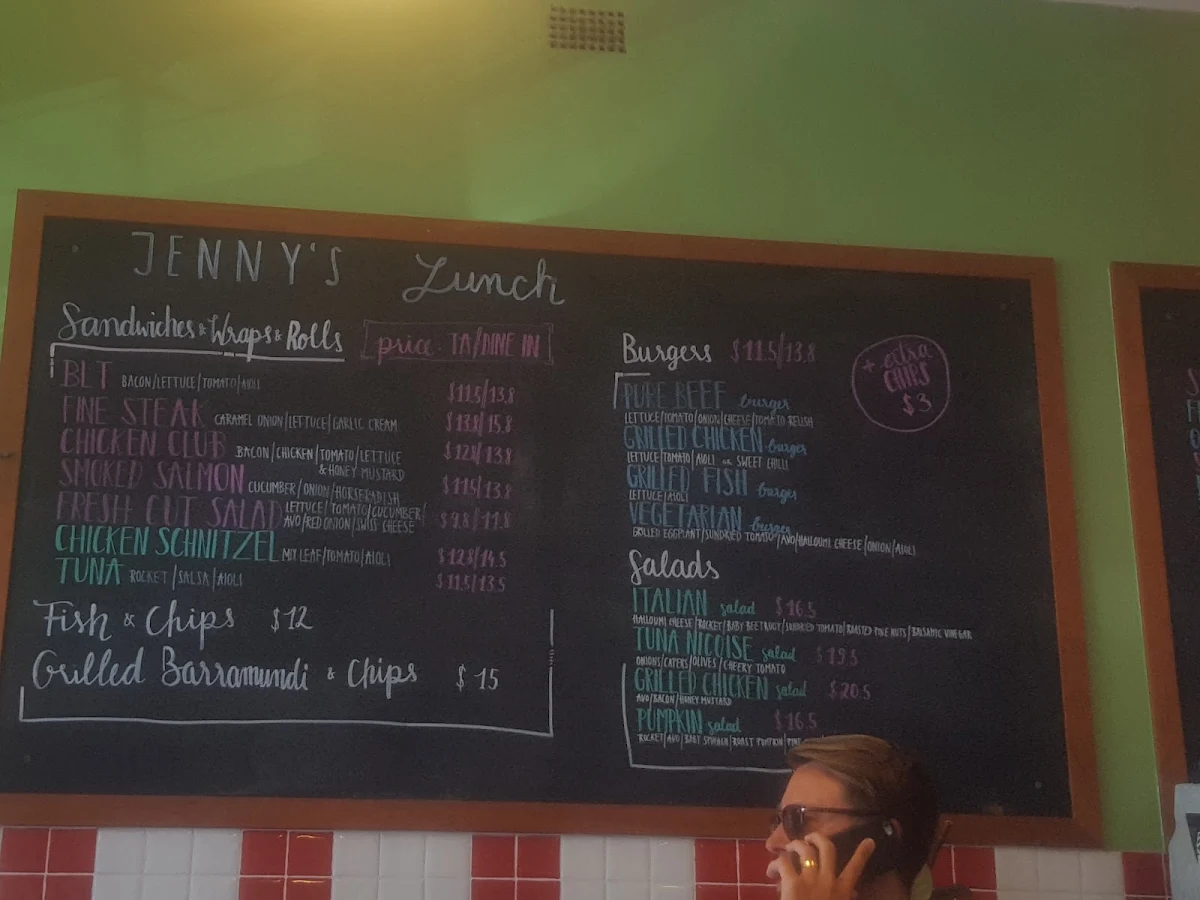 JENNY'S Lunch
Sandwiches & Wraps & Rolls
price. TA/DINE IN
BLT BACON/LETTUCE/TOMATO/AIOLI $11.5/13.8
FINE STEAK CARAMEL ONION/LETTUCE/GARLIC CREAM $13.8/15.8
CHICKEN CLUB BACON/CHICKEN/TOMATO/LETTUCE $12.8/13.8
& HONEY MUSTARD
SMOKED SALMON CUCUMBER/ONION/HORSERADISH $11.5/13.8
FRESH CUT SALAD LETTUCE/TOMATO/CUCUMBER/ $9.8/11.8
AVO/RED ONION/SWISS CHEESE
CHICKEN SCHNITZEL MIX LEAF/TOMATO/AIOLI $12.8/14.5
TUNA ROCKET/SALSA/AIOLI $11.5/13.5
Fish & Chips $12
Grilled Barramundi & Chips $15
Burgers $11.5/13.8
+ extra
CHIPS
$3
PURE BEEF burger
LETTUCE/TOMATO/ONION/CHEESE/TOMATO RELISH
GRILLED CHICKEN burger
LETTUCE/TOMATO/AIOLI or SWEET CHILLI
GRILLED FISH burger
LETTUCE/AIOLI
VEGETARIAN burger
GRILLED EGGPLANT/SUNDRIED TOMATO/AVO/HALLOUMI CHEESE/ONION/AIOLI
Salads
ITALIAN salad $16.5
HALLOUMI CHEESE/ROCKET/BABY BEETROOT/SUNDRIED TOMATO/ROASTED PINE NUTS/BALSAMIC VINEGAR
TUNA NICOISE salad $19.5
ONIONS/CAPERS/OLIVES/CHERRY TOMATO
GRILLED CHICKEN salad $20.5
AVO/BACON/HONEY MUSTARD
PUMPKIN salad $16.5
ROCKET/AVO/BABY SPINACH/ROAST PUMPKIN/PINE